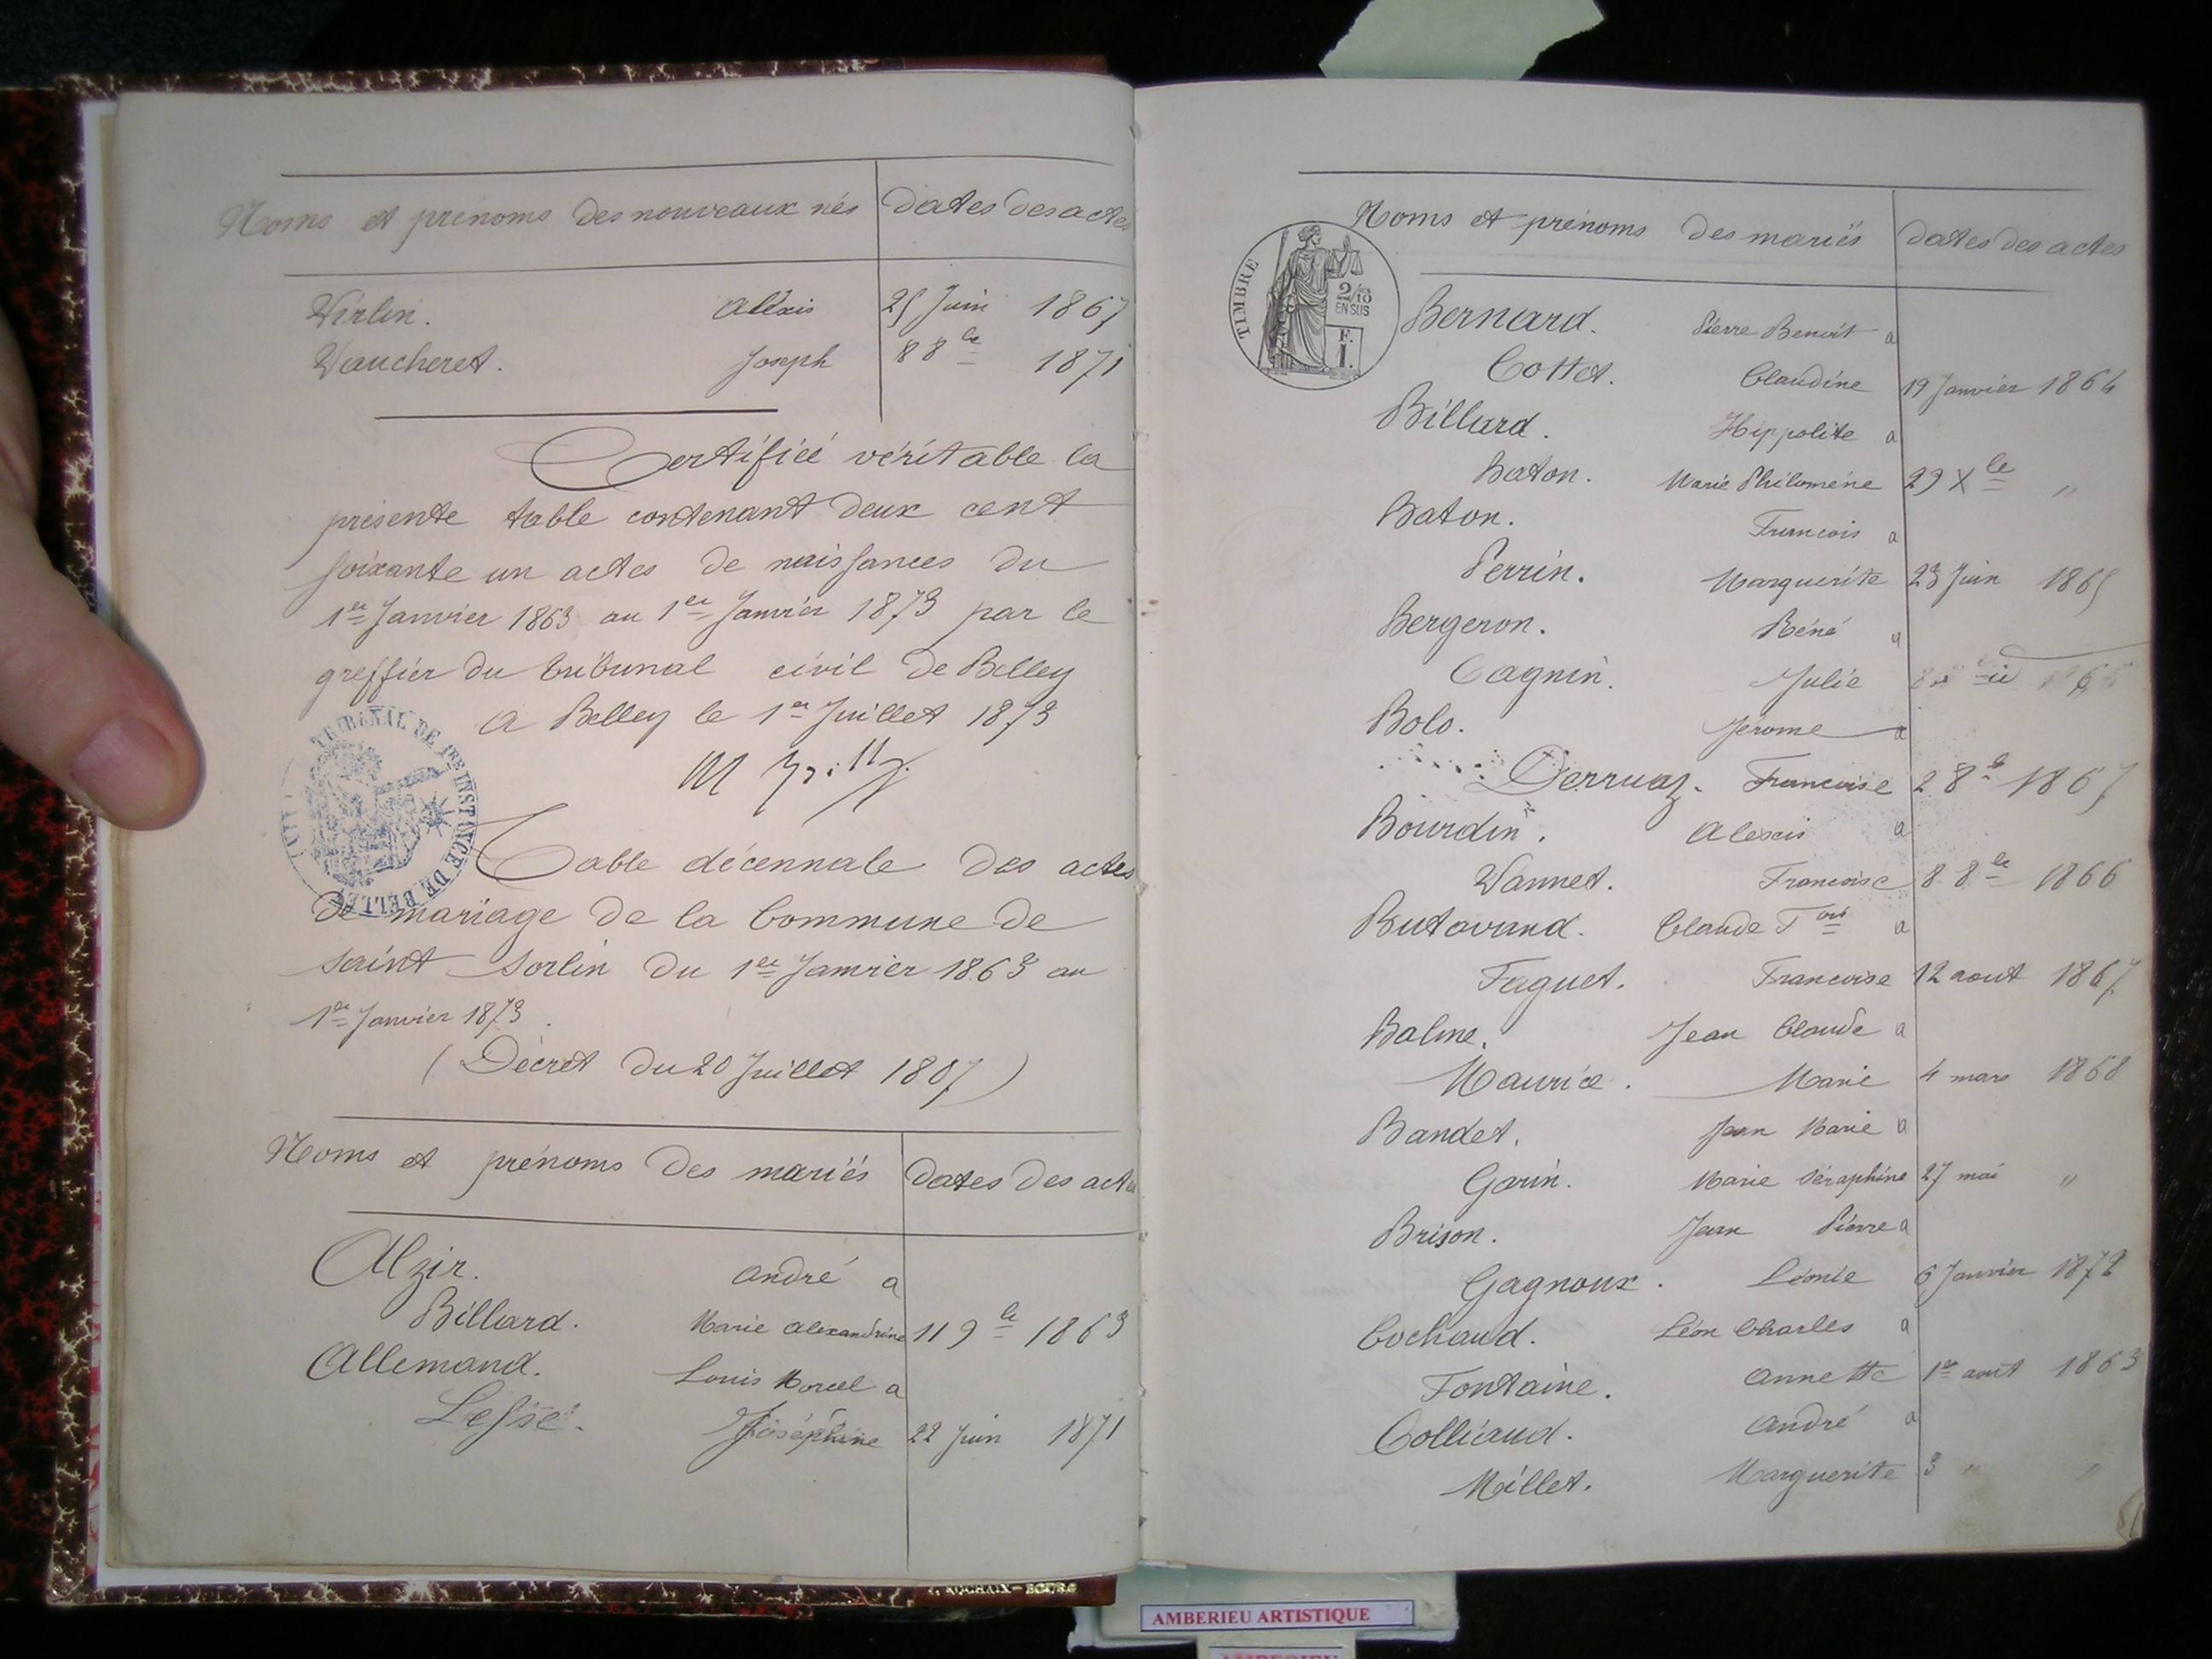 Noms et prénoms des nouveaux nés dates des actes
Virlin. Alexis 25 Juin 1867
Vaucheret. Joseph 8 8bre 1871
Certifiée véritable la
présente table contenant deux cent
soixante un actes de naissances du
1er Janvier 1863 au 1er Janvier 1873 par le
greffier du tribunal civil de Belley
A Belley le 1er Juillet 1873
TRIBUNAL DE 1RE INSTANCE DE BELLEY
Table décennale des actes
de mariage de la Commune de
saint Sorlin du 1er Janvier 1863 au
1er Janvier 1873.
(Décret du 20 Juillet 1807)
Noms et prénoms des mariés dates des actes
Alzir. André a
Billard. Marie Alexandrine 11 9bre 1863
Allemand. Louis Marcel a
Lessie. Joséphine 22 Juin 1871
Noms et prénoms des mariés dates des actes
TIMBRE
2/10
EN SUS
F.
1.
Bernard. Pierre Benoit a
Cottet. Claudine 19 Janvier 1864
Billard. Hippolite a
Baton. Marie Philomène 29 Xbre "
Baton. Francois a
Perrin. Marguerite 23 Juin 1865
Bergeron. Réné a
Cagnin. Julie
Bolo. Jérome a
Derruaz. Francoise 2 8bre 1867
Bourdin. Alexis a
Vannet. Francoise 8 8bre 1866
Butavand. Claude Fois a
Faguet. Francoise 12 aout 1867
Balme. Jean Claude a
Maurice. Marie 4 mars 1868
Bandet. Jean Marie a
Garin. Marie Séraphine 27 mai "
Brison. Jean Pierre a
Gagnoux. Léonie 6 Janvier 1872
Cochaud. Léon Charles a
Fontaine. Annette 1er aout 1863
Colliaud. André a
Millet. Marguerite 3 " "
AMBERIEU ARTISTIQUE